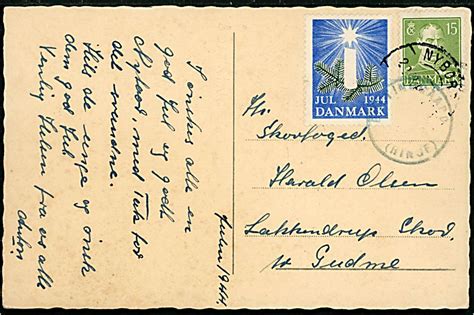 I ønskes alle en
god Jul og godt
Nytaar, med Tak for
det svundne.
Hils de unge og ønsk
dem god Jul
Kærlig Hilsen fra os alle
Julen 1944
JUL 1944
DANMARK
15
DANMARK
NYBORG
(RINGE)
Hr.
Skovfoged.
Harald Olsen
Lakkendrup Skov.
pr Gudme